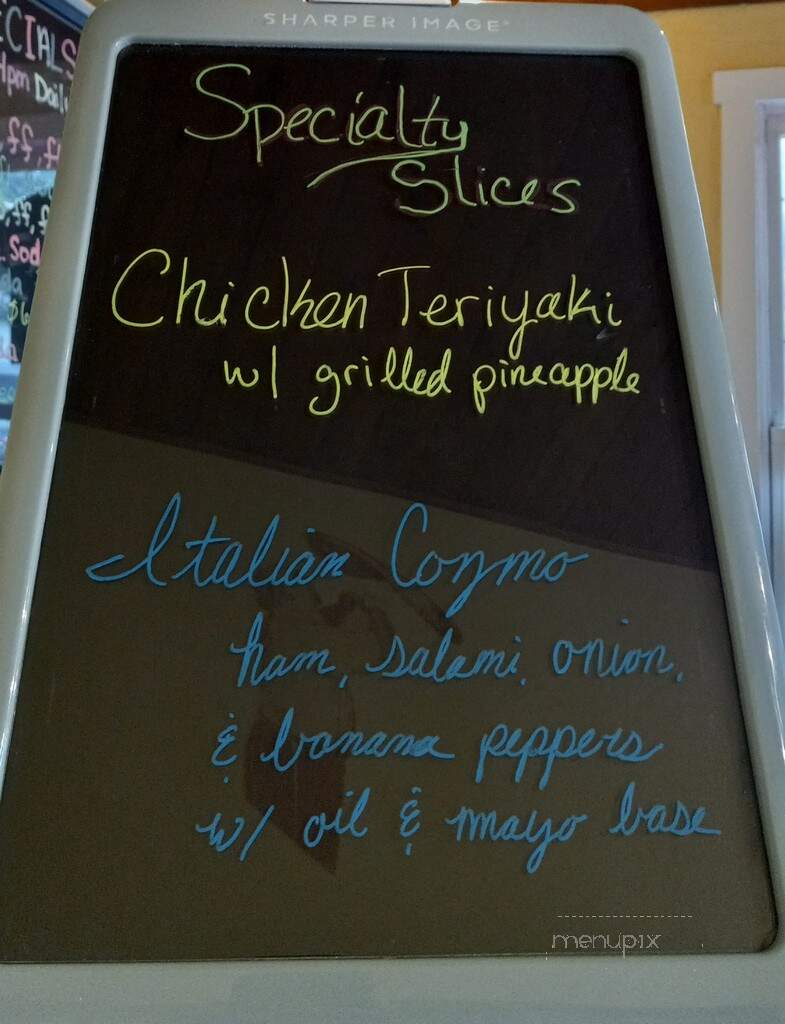 SHARPER IMAGE
Specialty
Slices
Chicken Teriyaki
w/ grilled pineapple
Italian Cozmo
ham, salami, onion,
& banana peppers
w/ oil & mayo base
menupix
4pm Daily
Sod